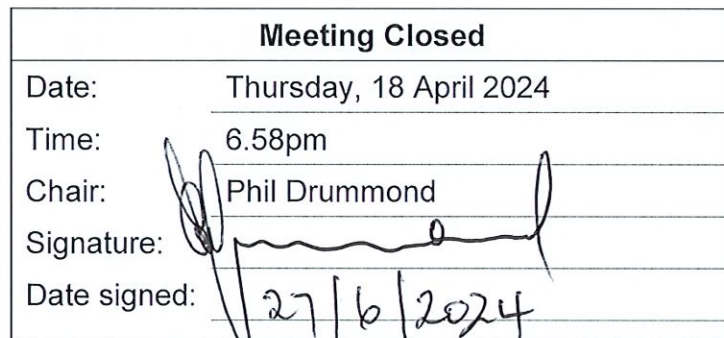 Meeting Closed
Date: Thursday, 18 April 2024
Time: 6.58pm
Chair: Phil Drummond
Signature:
Date signed: 27/6/2024